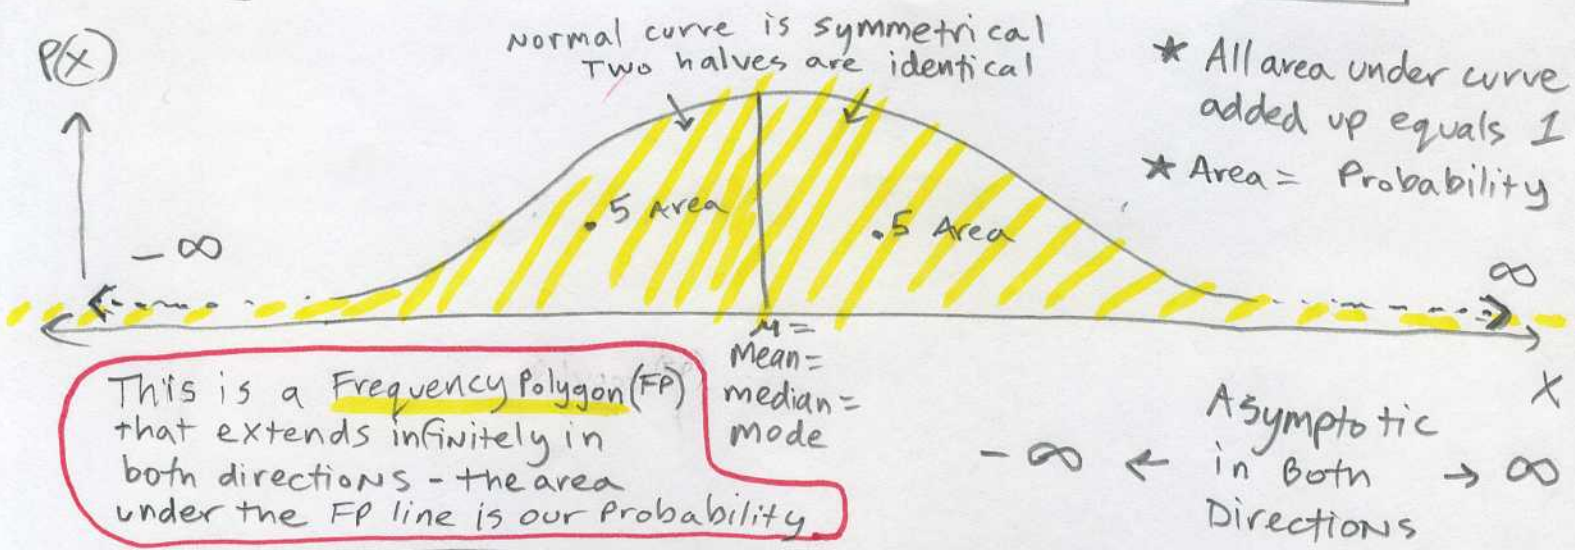 Normal curve is symmetrical
Two halves are identical
P(X)
★ All area under curve
added up equals 1
★ Area = Probability
.5 Area
.5 Area
-∞
∞
μ =
Mean =
median =
mode
X
This is a Frequency Polygon (FP)
that extends infinitely in
both directions - the area
under the FP line is our Probability.
Asymptotic
-∞ ← in Both → ∞
Directions